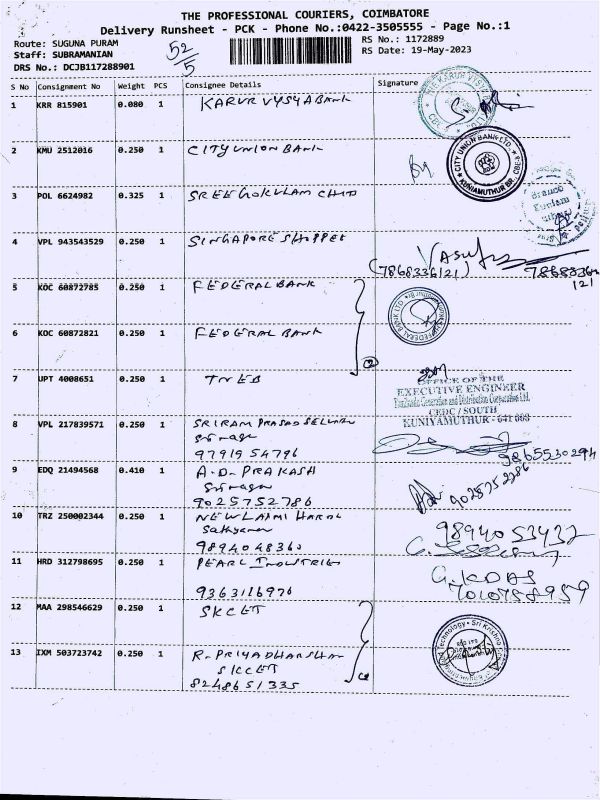 THE PROFESSIONAL COURIERS, COIMBATORE
Delivery Runsheet - PCK - Phone No.:0422-3505555 - Page No.:1
Route: SUGUNA PURAM
RS No.: 1172889
Staff: SUBRAMANIAN
52/5
RS Date: 19-May-2023
DRS No.: DCJB117288901
S No Consignment No Weight PCS Consignee Details Signature
1 KRR 815901 0.080 1 KARUR VYSYA BANK
2 KMU 2512016 0.250 1 CITY UNION BANK
CITY UNION BANK LTD.
KUNIAMUTHUR BR., CBE
3 POL 6624982 0.325 1 SREE GOKULAM CHID
4 VPL 943543529 0.250 1 SINGAPORE SHOPPEE
(7868336121) 7868336
121
5 KOC 60872785 0.250 1 FEDERAL BANK
FEDERAL BANK LTD.
6 KOC 60872821 0.250 1 FEDERAL BANK
2
7 UPT 4008651 0.250 1 TNEB
OFFICE OF THE
EXECUTIVE ENGINEER
Tamilnadu Generation and Distribution Corporation Ltd.
CEDC / SOUTH
KUNIYAMUTHUR - 641 008
8 VPL 217839571 0.250 1 SRIRAM PRASAD SELVAM
9791954796
9865530294
9 EDQ 21494568 0.410 1 A.D. PRAKASH
9025752786
10 TRZ 250002344 0.250 1 NEW LAXMI
9894048360
9894053432
11 HRD 312798695 0.250 1 PEARL INDUSTRIES
9363116976
G.K DAS
7010758959
12 MAA 298546629 0.250 1 SKCET
13 IXM 503723742 0.250 1 R. PRIYADHARSHA
SKCET
8248651335